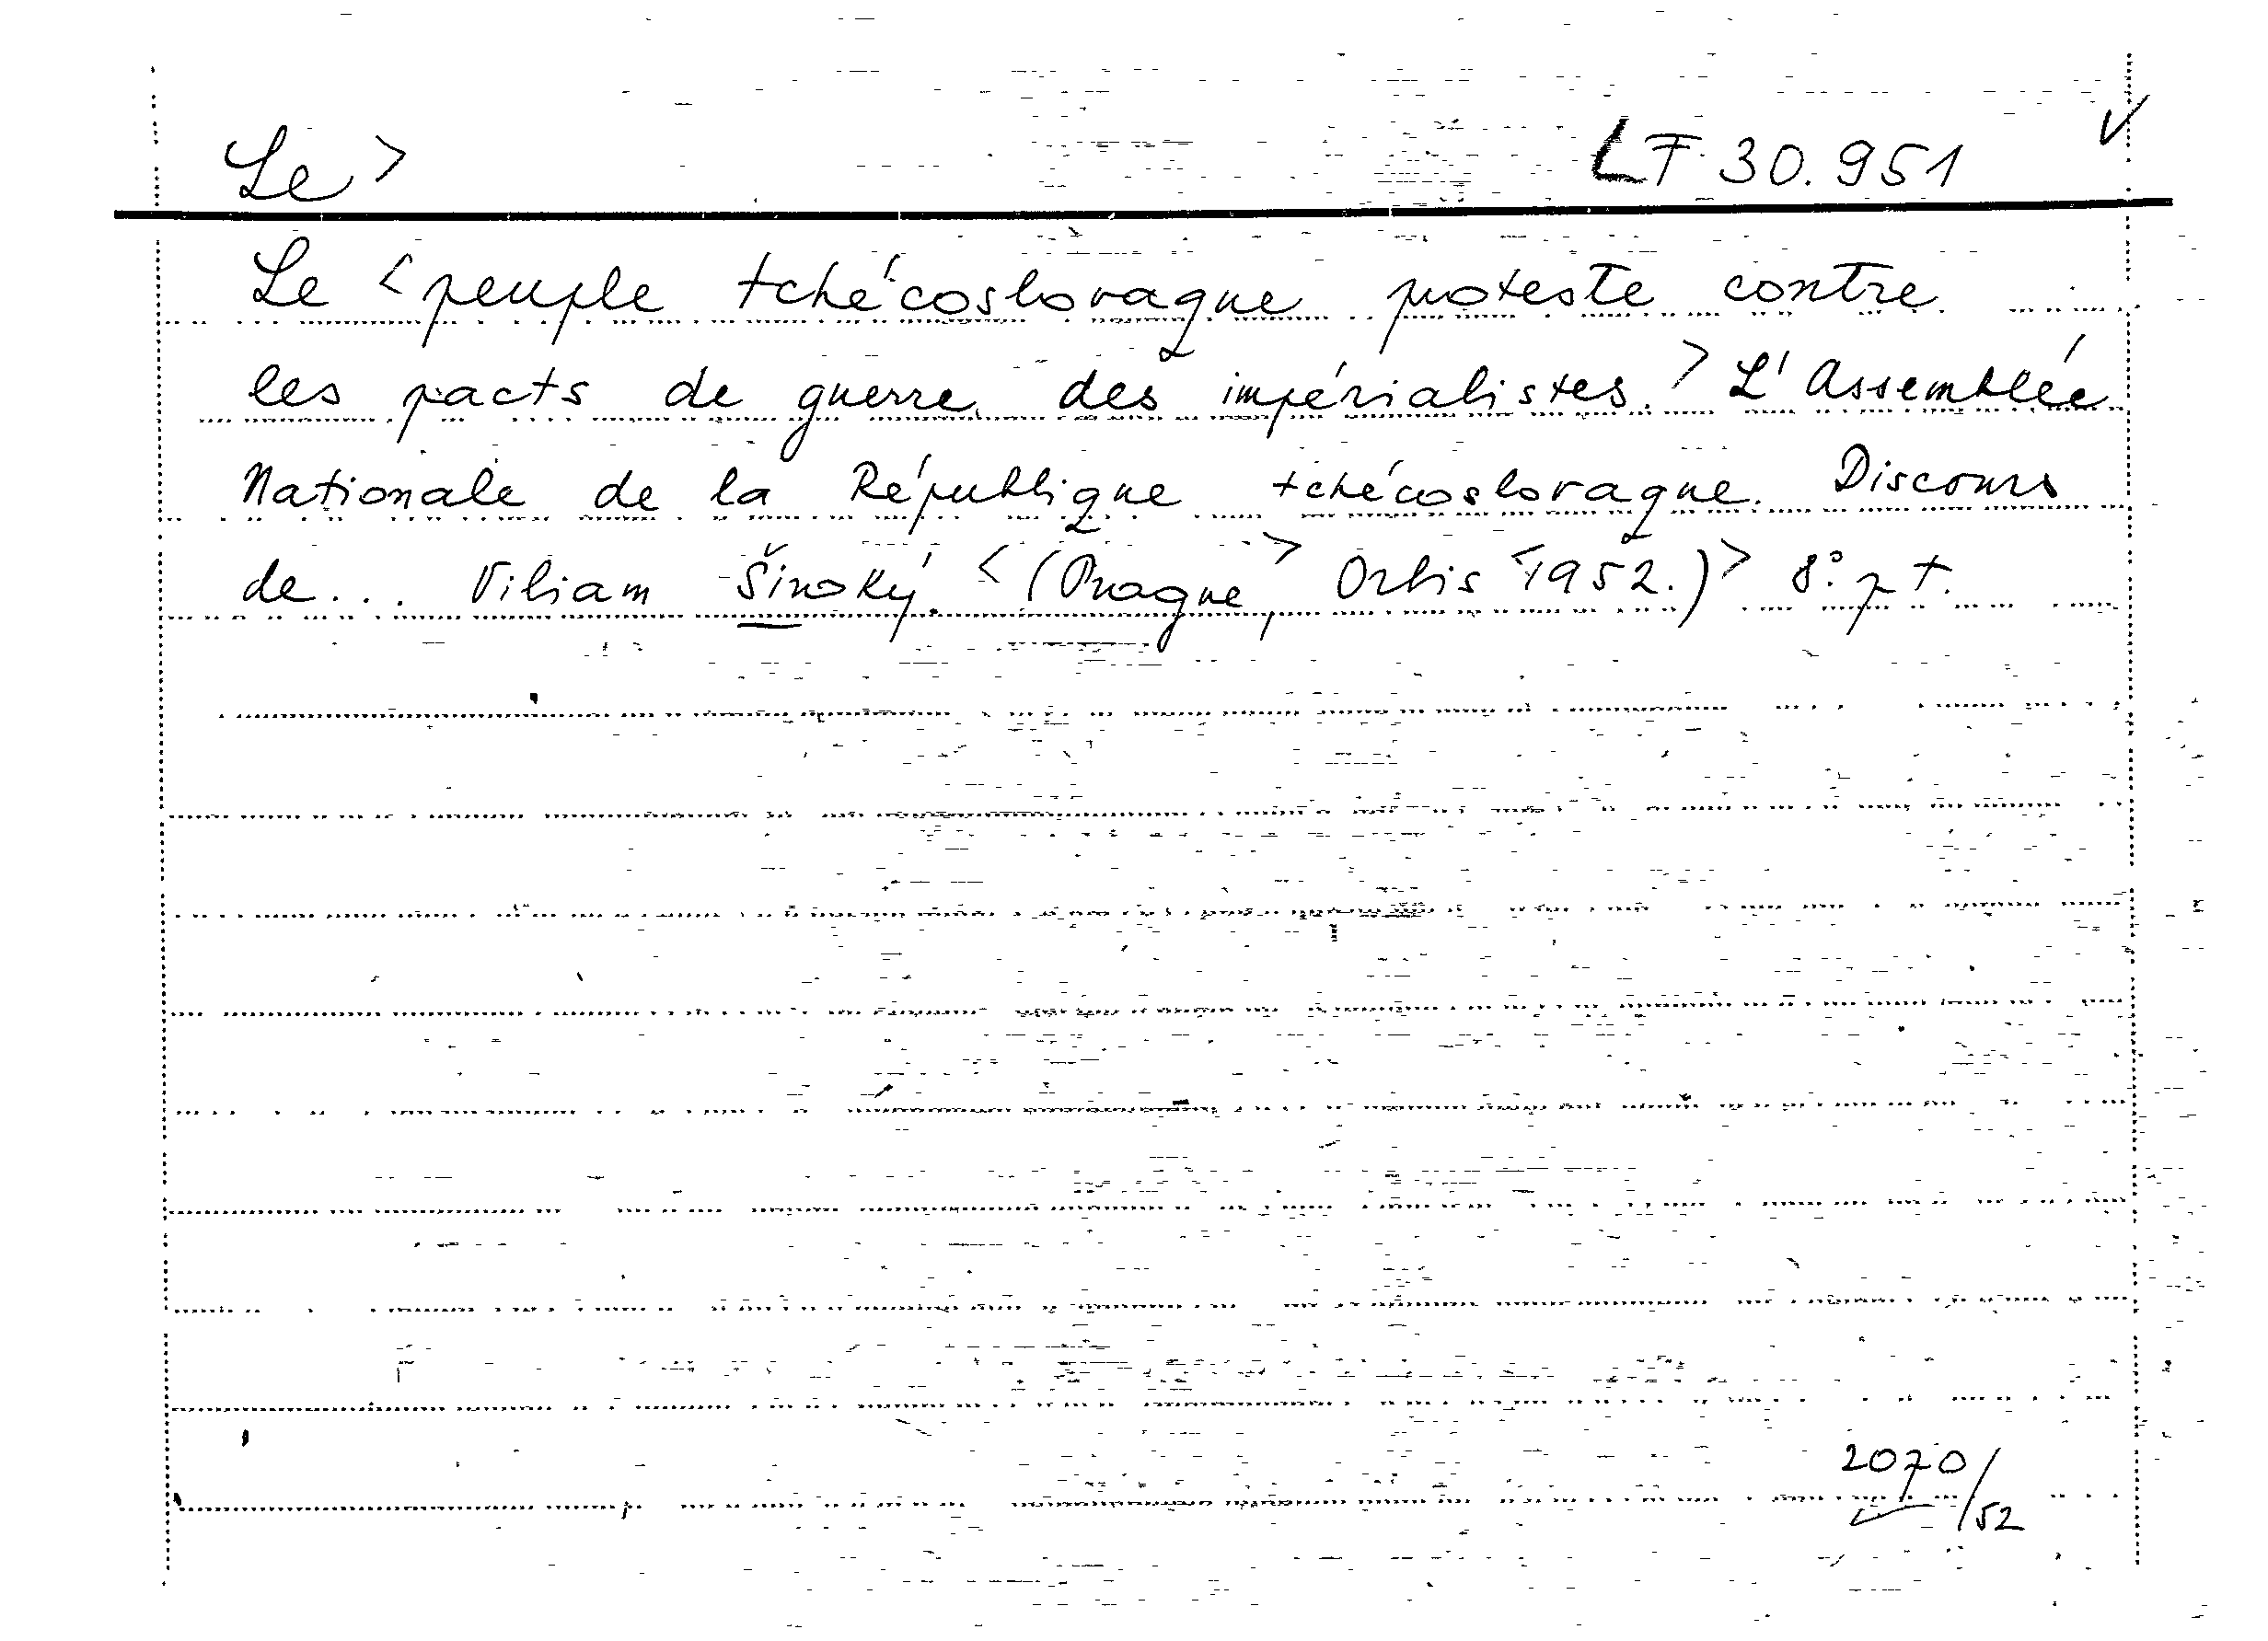 Le > LF 30.951 √
Le < peuple tchécoslovaque proteste contre
les pacts de guerre des impérialistes. > L'Assemblée
Nationale de la République tchécoslovaque. Discours
de... Viliam Široký. < (Prague, > Orbis < 1952.) > 8° p t.
2070/52